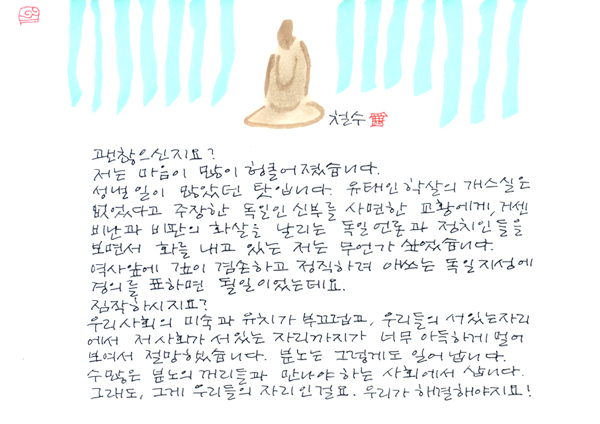 철수
괜찮으신지요?
저는 마음이 많이 헝클어졌습니다.
성낼 일이 많았던 탓입니다. 유태인학살의 개스실은
없었다고 주장한 독일인 신부를 사면한 교황에게, 거센
비난과 비판의 화살을 날리는 독일언론과 정치인들을
보면서 화를 내고 있는 저는 무언가 싶었습니다.
역사앞에 깊이 겸손하고 정직하려 애쓰는 독일지성에
경의를 표하면 될일이었는데요.
짐작하시지요?
우리사회의 미숙과 유치가 부끄럽고, 우리들의 서있는자리
에서 저사회가 서있는 자리까지가 너무 아득하게 멀어
보여서 절망했습니다. 분노는 그렇게도 일어납니다.
수많은 분노의 꺼리들과 만나야 하는 사회에서 삽니다.
그래도, 그게 우리들의 자리인걸요. 우리가 해결해야지요!